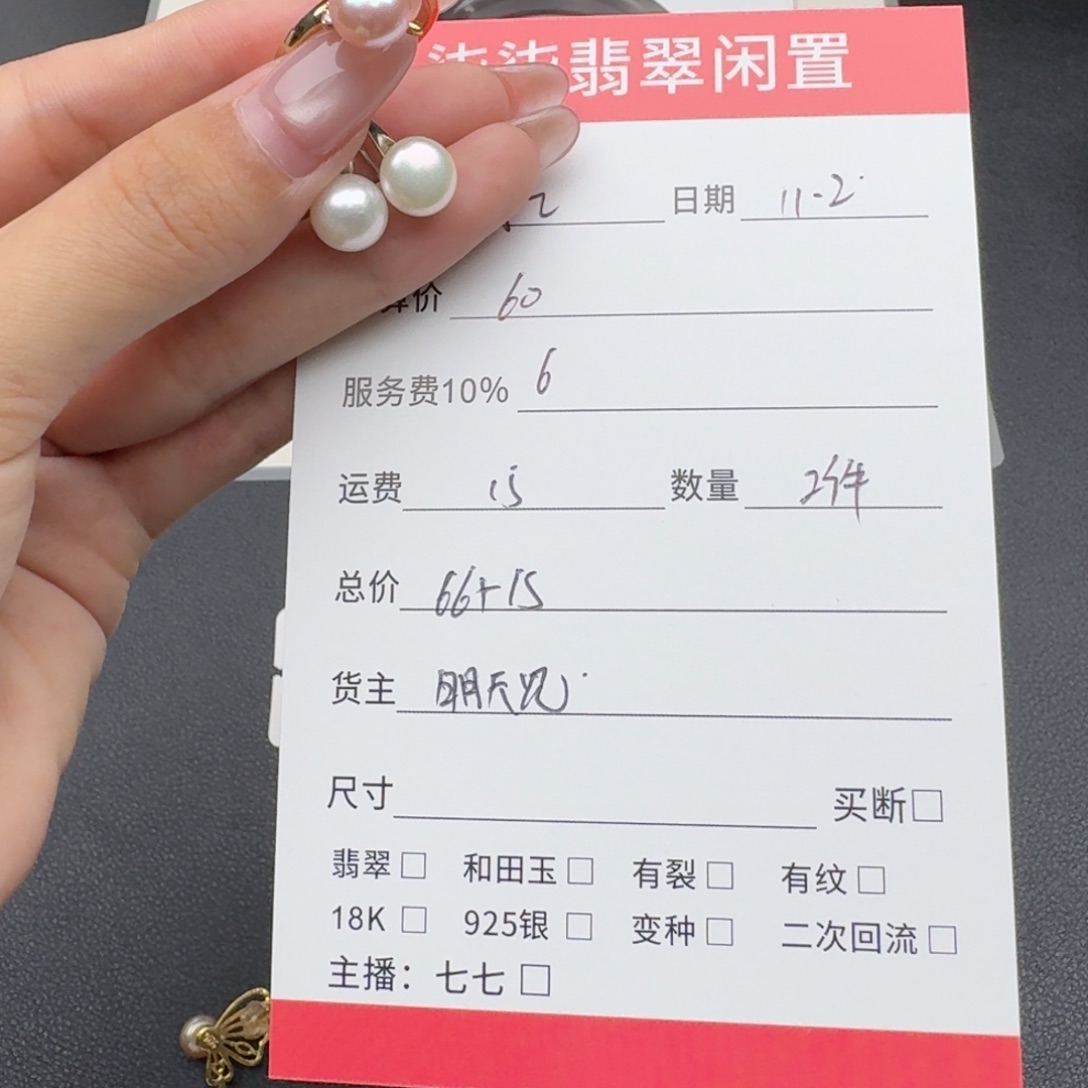 柒柒翡翠闲置
2 日期 11-2
算价 60
服务费10% 6
运费 15 数量 2件
总价 66+15
货主 明天见
尺寸 买断□
翡翠□ 和田玉□ 有裂□ 有纹□
18K□ 925银□ 变种□ 二次回流□
主播：七七□